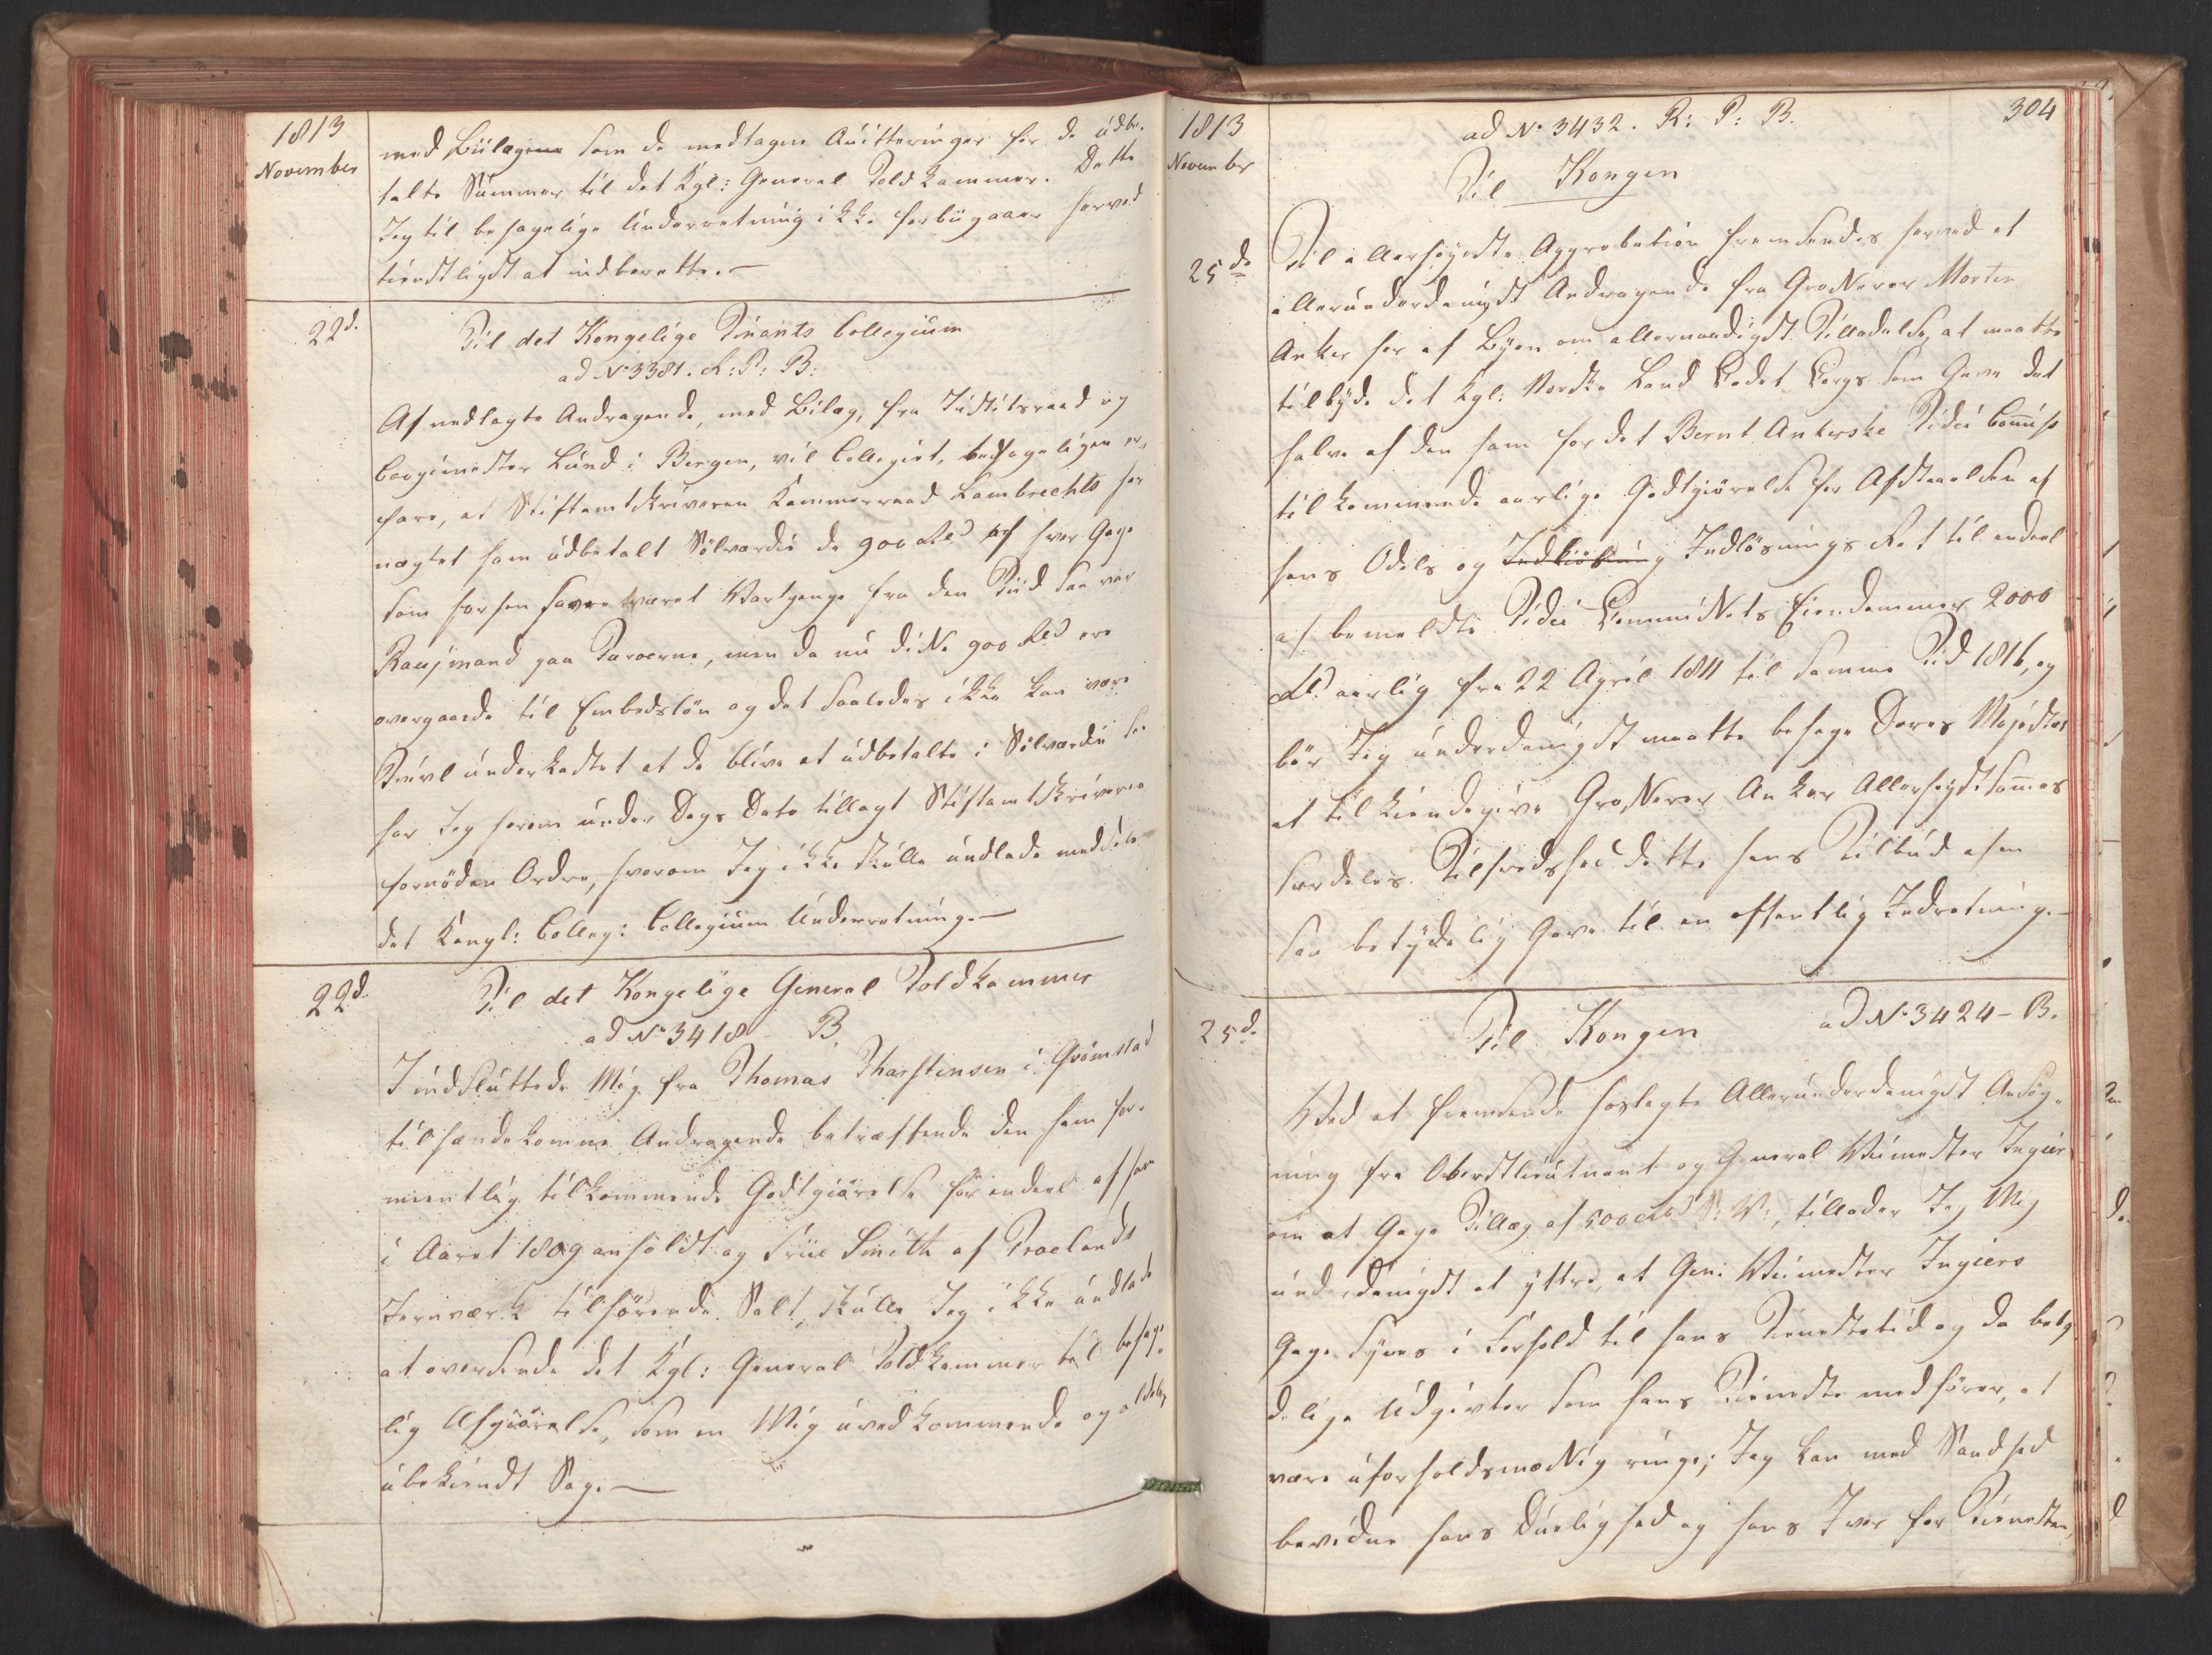 1813
November
med Biilagene som de medtagne Qvitteringer for de udbe-
talte Summer til det Kgl: General Toldkammer. Dette
Jeg til behagelige Underretning ikke forbiigaaer herved
tienstligst at indberette.—
22d.
Til det Kongelige Finants Collegium
ad No 3381. R: P: B:
Af nedlagte Andragende, med Bilag, fra Justitsraad og
Borgimester Lund i Bergen, vil Collegiet, behageligen er-
fare, at Stiftamtskriveren Kammerraad Lambrechts har
nægtet ham udbetalt Sölværdie de 900 Rd af hver Gage
som forhen have været Vartpenge fra den Tiid han var
paa Færoerne, men da nu disse 900 Rd ere
overgaaede til Embedslön og det saaledes ikke kan være
Tvivl underkastet at de blive at udbetalte i Sölværdie saa
har Jeg herom under Dags Dato tillagt Stiftamtskriveren
fornöden Ordre, hvorom Jeg ikke skulle undlade meddele
det Kongl: Colleg: Collegium Underretning.—
22d.
Til det Kongelige General Toldkammer
ad No 3418 B.
I indsluttede Mig fra Thomas Thorstensen i Grömstad
tilhændekomne Andragende betræffende den ham for-
mentlig tilkommende Godtgiörelse for endeel af ham
i Aaret 1809 anholdt og Frue Smith af Froelands
Jernværk tilhörende Salt, skulle Jeg ikke undlade
at oversende det Kgl: General Toldkammer til behage-
lig Afgiörelse, som en Mig uvedkommende og aldeles
ubekiendt Sag.—
304
1813
November
ad No 3432. R: P: B.
Til Kongen
25de
Til allerhöyeste Approbation fremsendes herved et
allerunderdanigst Andragende fra Grosserer Morten
Anker her af Byen om allernaadigst Tilladelse, at maatte
tilbyde det Kgl: Norske Land Cadet Corps som Gave det
halve af den ham for det Bernt Ankerske Fidei Commiss
tilkommende aarlige Godtgiörelse for Afstaaelsen af
hans Odels og Indkiöbning Indlösnings Ret til endeel
af bemeldte Fidei Commissets Eiendommer 2000
Rd aarlig fra 22 April 1811 til samme Tid 1816, og
bör Jeg underdanigst maatte behage Deres Majestæt
at tilkiendegive Grosserer Anker Allerhöystsammes
særdeles Tilfredshed dette hans Tilbud af en
saa betydelig Gave til en offentlig Indretning.—
25d.
Til Kongen
ad No 3424 - B.
Ved at fremsende hoslagte Allerunderdanigst Ansög-
ning fra Oberstlieutnant og General Veimester Ingier
om at Gage Tillæg af 500 Rd S: V:, tillader Jeg Mig
underdanigst at yttre, at Gen: Veimester Ingiers
Gage synes i Forhold til hans Tienestetid og de bety-
delige Udgivter som hans Tieneste medförer, at
være uforholdsmæssig ringe; Jeg kan med Sandhed
bevidne hans Duelighed og hans Iver for Tienesten,